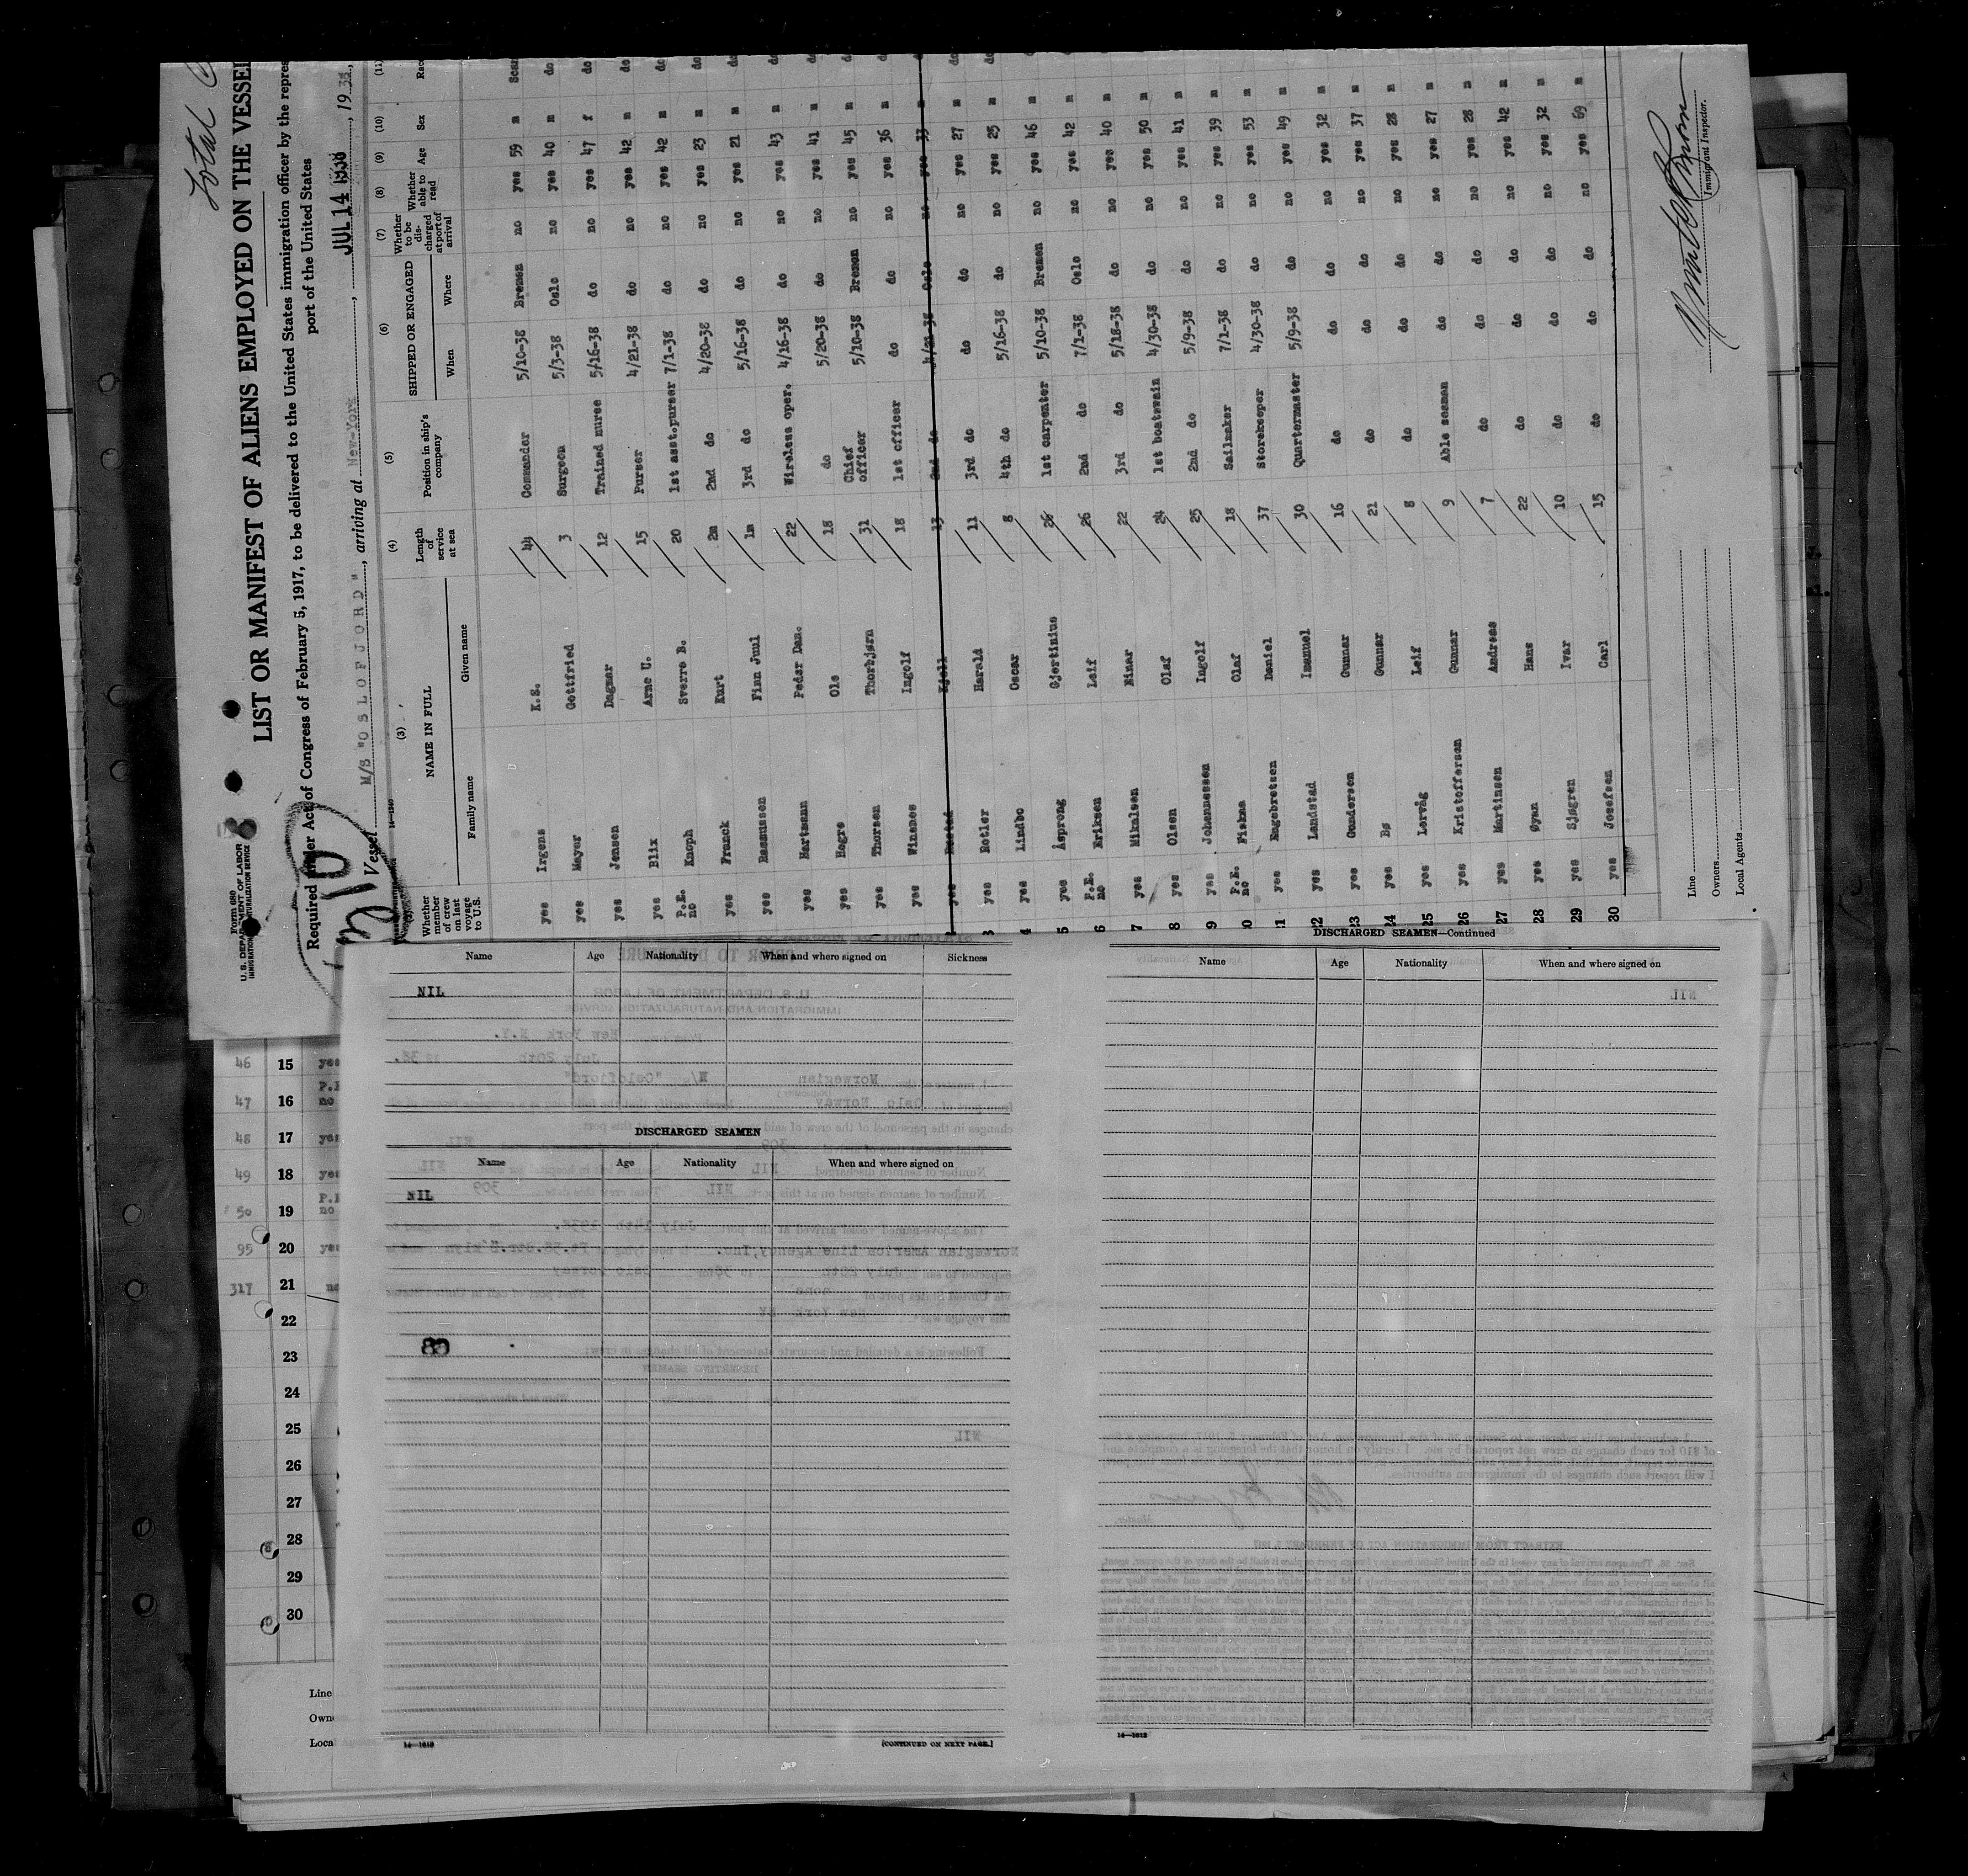 Total
Form 680
U. S. DEPARTMENT OF LABOR
IMMIGRATION NATURALIZATION SERVICE
LIST OR MANIFEST OF ALIENS EMPLOYED ON THE VESSEL
Required under Act of Congress of February 5, 1917, to be delivered to the United States immigration officer by the repres
port of the United States
Vessel M/S "OSLOFJORD", arriving at New-York, JUL 14 1938, 1938,
14—1240
(3) (4) (5) (6) (7) (8) (9) (10) (11)
Whether member of crew on last voyage to U.S. NAME IN FULL Family name Given name Length of service at sea Position in ship's company SHIPPED OR ENGAGED When Where Whether to be discharged at port of arrival Whether able to read Age Sex Rac
yes Irgens K.S. 44 Commander 5/10-38 Bremen no yes 59 m Scan
yes Meyer Gottfried 3 Surgeon 5/3-38 Oslo no yes 40 m do
yes Jensen Dagmar 12 Trained nurse 5/16-38 do no yes 47 f do
yes Blix Arne U. 15 Purser 4/21-38 do no yes 42 m do
P.E. no Knoph Sverre B. 20 1st asst.purser 7/1-38 do no yes 42 m do
yes Franck Kurt 2m 2nd do 4/20-38 do no yes 23 m do
yes Rasmussen Finn Juul 1m 3rd do 5/16-38 do no yes 21 m do
yes Hartmann Peder Dan. 22 Wireless oper. 4/16-38 do no yes 43 m do
yes Hegre Ole 18 do 5/20-38 do no yes 41 m do
yes Thorsen Thorbjørn 31 Chief officer 5/10-38 Bremen no yes 45 m do
yes Winsnes Ingolf 18 1st officer do do no yes 36 m do
yes Kjell 13 2nd do 4/21-38 Oslo no yes 33 m d
3 yes Rotler Harald 11 3rd do do do no yes 27 m do
4 yes Lindbo Oscar 8 4th do 5/16-38 do no yes 25 m do
5 yes Åsprong Gjertinius 26 1st carpenter 5/10-38 Bremen no yes 46 m
6 P.E. no Eriksen Leif 26 2nd do 7/1-38 Oslo no yes 42 m
7 yes Mikalsen Einar 22 3rd do 5/18-38 do no yes 40 m
8 yes Olsen Olaf 24 1st boatswain 4/30-38 do no yes 50 m
9 yes Johannessen Ingolf 25 2nd do 5/9-38 do no yes 41 m
0 P.E. no Fiskaa Olaf 18 Sailmaker 7/1-38 do no yes 39 m
21 yes Engebretsen Daniel 37 Storekeeper 4/30-38 do no yes 53 m
22 yes Landstad Imanuel 30 Quartermaster 5/9-38 do no yes 49 m
23 yes Gundersen Gunnar 16 do do do no yes 32 m
24 yes Bø Gunnar 21 do do do no yes 37 m
25 yes Lervåg Leif 8 do do do no yes 28 m
26 yes Kristoffersen Gunnar 9 Able seaman do do no yes 27 m
27 yes Martinsen Andreas 7 do do do no yes 28 m
28 yes Øyan Hans 22 do do do no yes 42 m
29 yes Sjøgren Ivar 10 do do do no yes 32 m
30 yes Josefsen Carl 15 do do do no yes 69 m
Line
Owners
Local Agents
Immigrant Inspector.
Name Age Nationality When and where signed on Sickness
NIL
DISCHARGED SEAMEN
Name Age Nationality When and where signed on
NIL
83
14—1613
[CONTINUED ON NEXT PAGE.]
DISCHARGED SEAMEN—Continued
Name Age Nationality When and where signed on
14—1613
46 15 yes
47 16 P.E no
48 17 yes
49 18 yes
50 19 P.E no
95 20 yes
317 21 no
22
23
24
25
26
27
28
29
30
Line
Owne
Loca